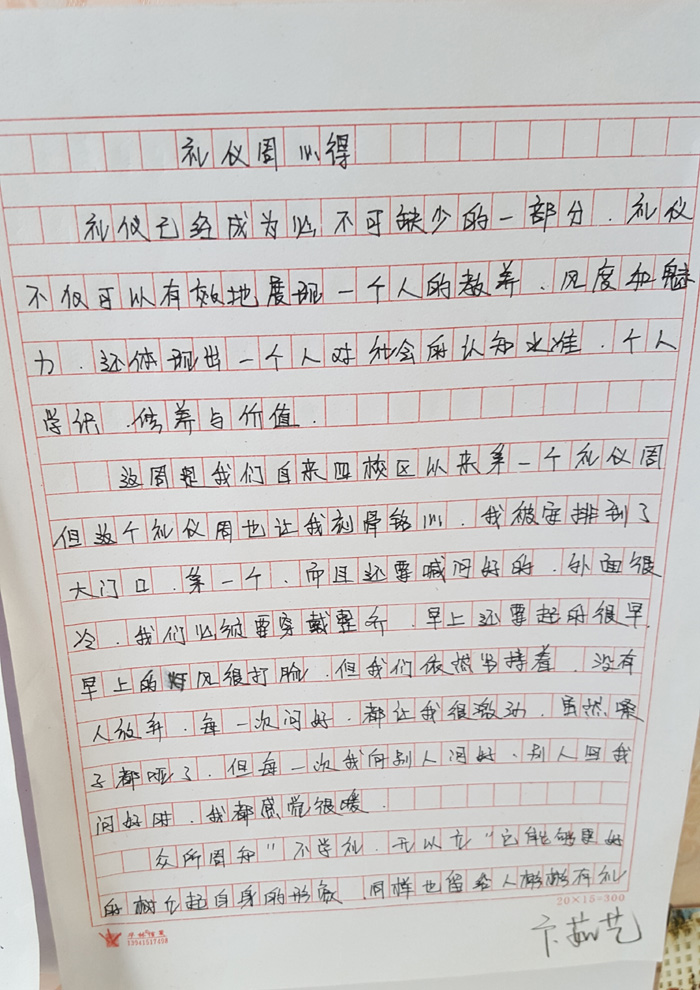 礼仪周心得
礼仪已经成为必不可缺少的一部分.礼仪
不仅可以有效地展现一个人的教养、风度和魅
力.还体现出一个人对社会的认知水准.个人
学识.修养与价值.
这周是我们自来四校区以来第一个礼仪周
但这个礼仪周也让我刻骨铭心.我被安排到了
大门口.第一个.而且还要喊问好的.外面很
冷.我们必须要穿戴整齐.早上还要起的很早.
早上的风很打脸.但我们依然坚持着.没有
人放弃.每一次问好.都让我很激动.虽然嗓
子都哑了.但每一次我向别人问好、别人回我
问好时.我都感觉很暖.
众所周知"不学礼.无以立"它能够更好
的树立起自身的形象 同样也留给人彬彬有礼
20×15=300
13941517498
卞茹艺